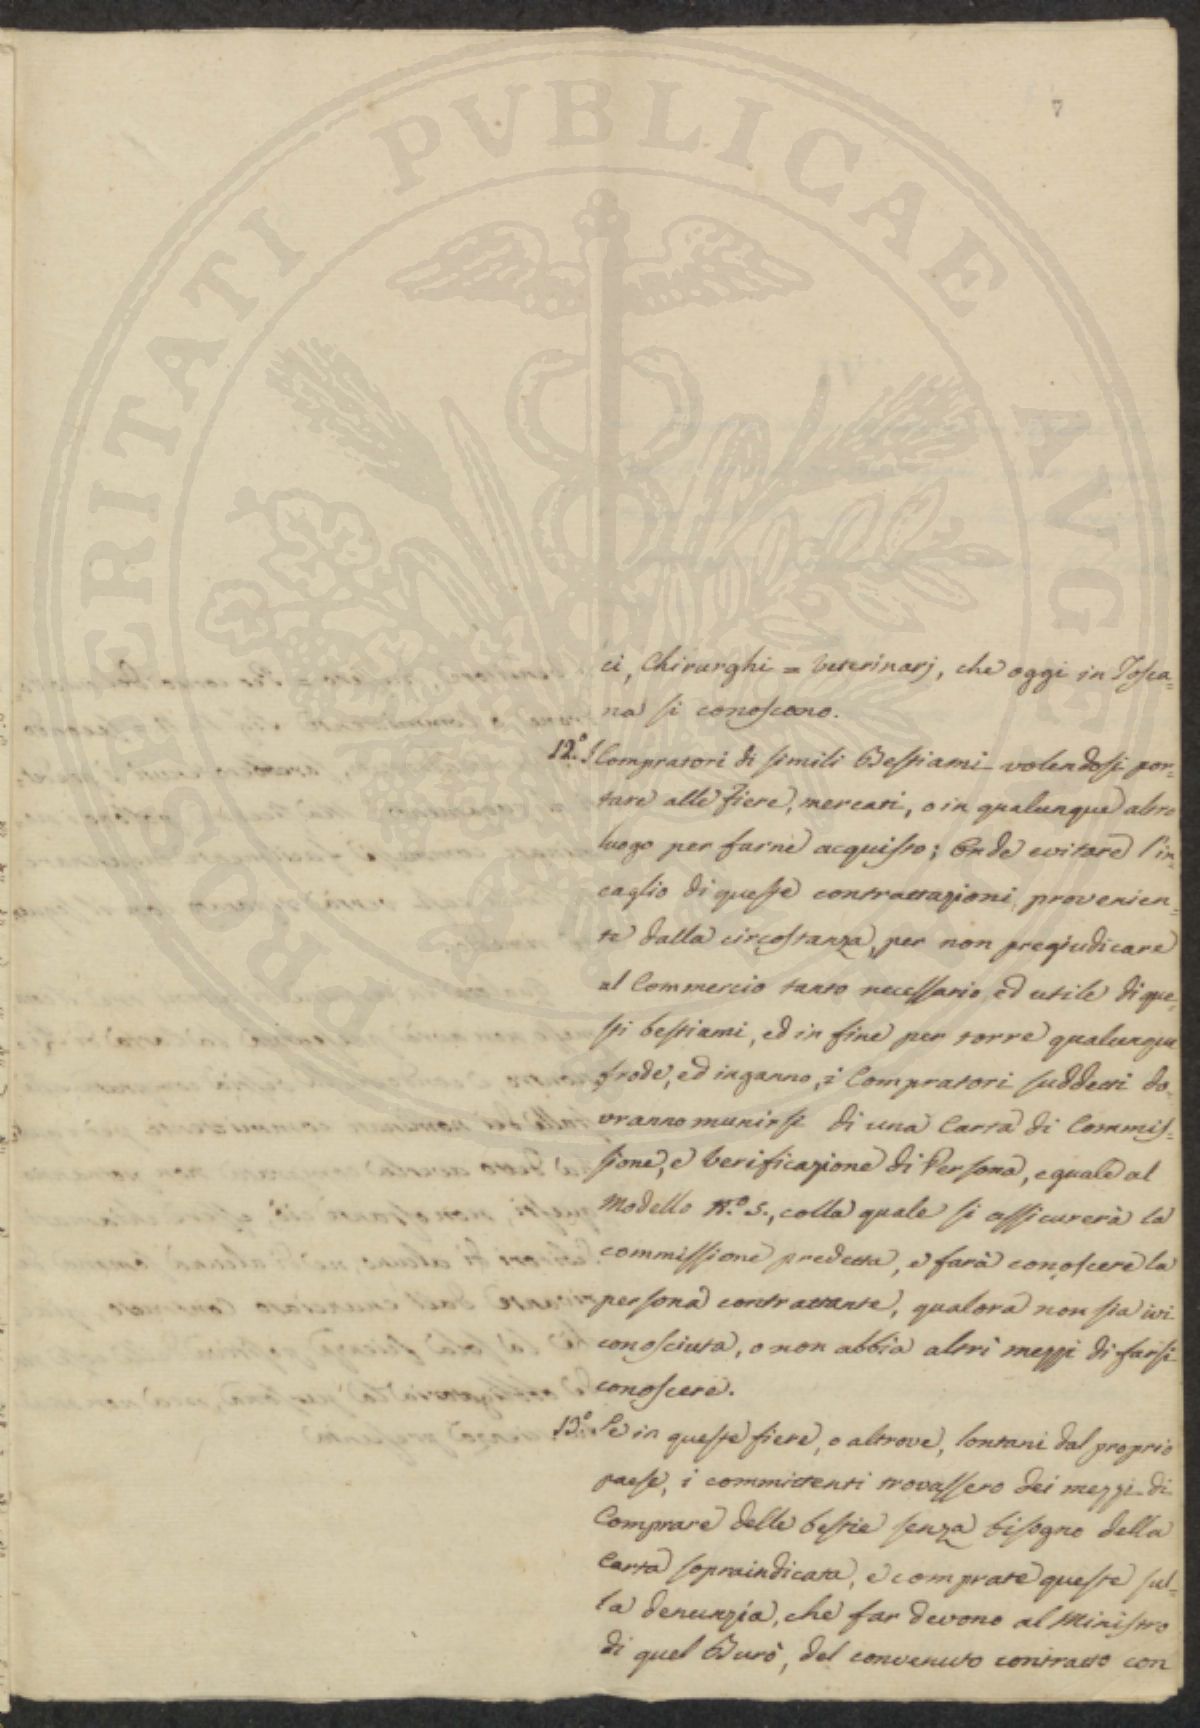 7
PROSPERITATI PVBLICAE AVGENDAE
ci, Chirurghi = Veterinarj, che oggi in Tosca-
na si conoscono.
12.° I Compratori di simili Bestiami volendosi por-
tare alle Fiere, mercati, o in qualunque altro
luogo per farne acquisto; Onde evitare l'in-
caglio di queste contrattazioni provenien-
te dalla circostanza, per non pregiudicare
al Commercio tanto necessario, ed utile di que-
sti bestiami, ed in fine per torre qualunque
frode, ed inganno, i Compratori suddetti do-
vranno munirsi di una Carta di Commis-
sione, e Verificazione di Persona, eguale al
Modello N.° 5., colla quale si assicurerà la
commissione predetta, e farà conoscere la
persona contrattante, qualora non sia ivi
conosciuta, o non abbia altri mezzi di farsi
conoscere.
13.° Se in queste fiere, o altrove, lontani dal proprio
paese, i committenti trovassero dei mezzi di
Comprare delle bestie senza bisogno della
Carta sopraindicata, e comprate queste sul-
la denunzia, che far devono al Ministro
di quel Burò, del convenuto contratto con